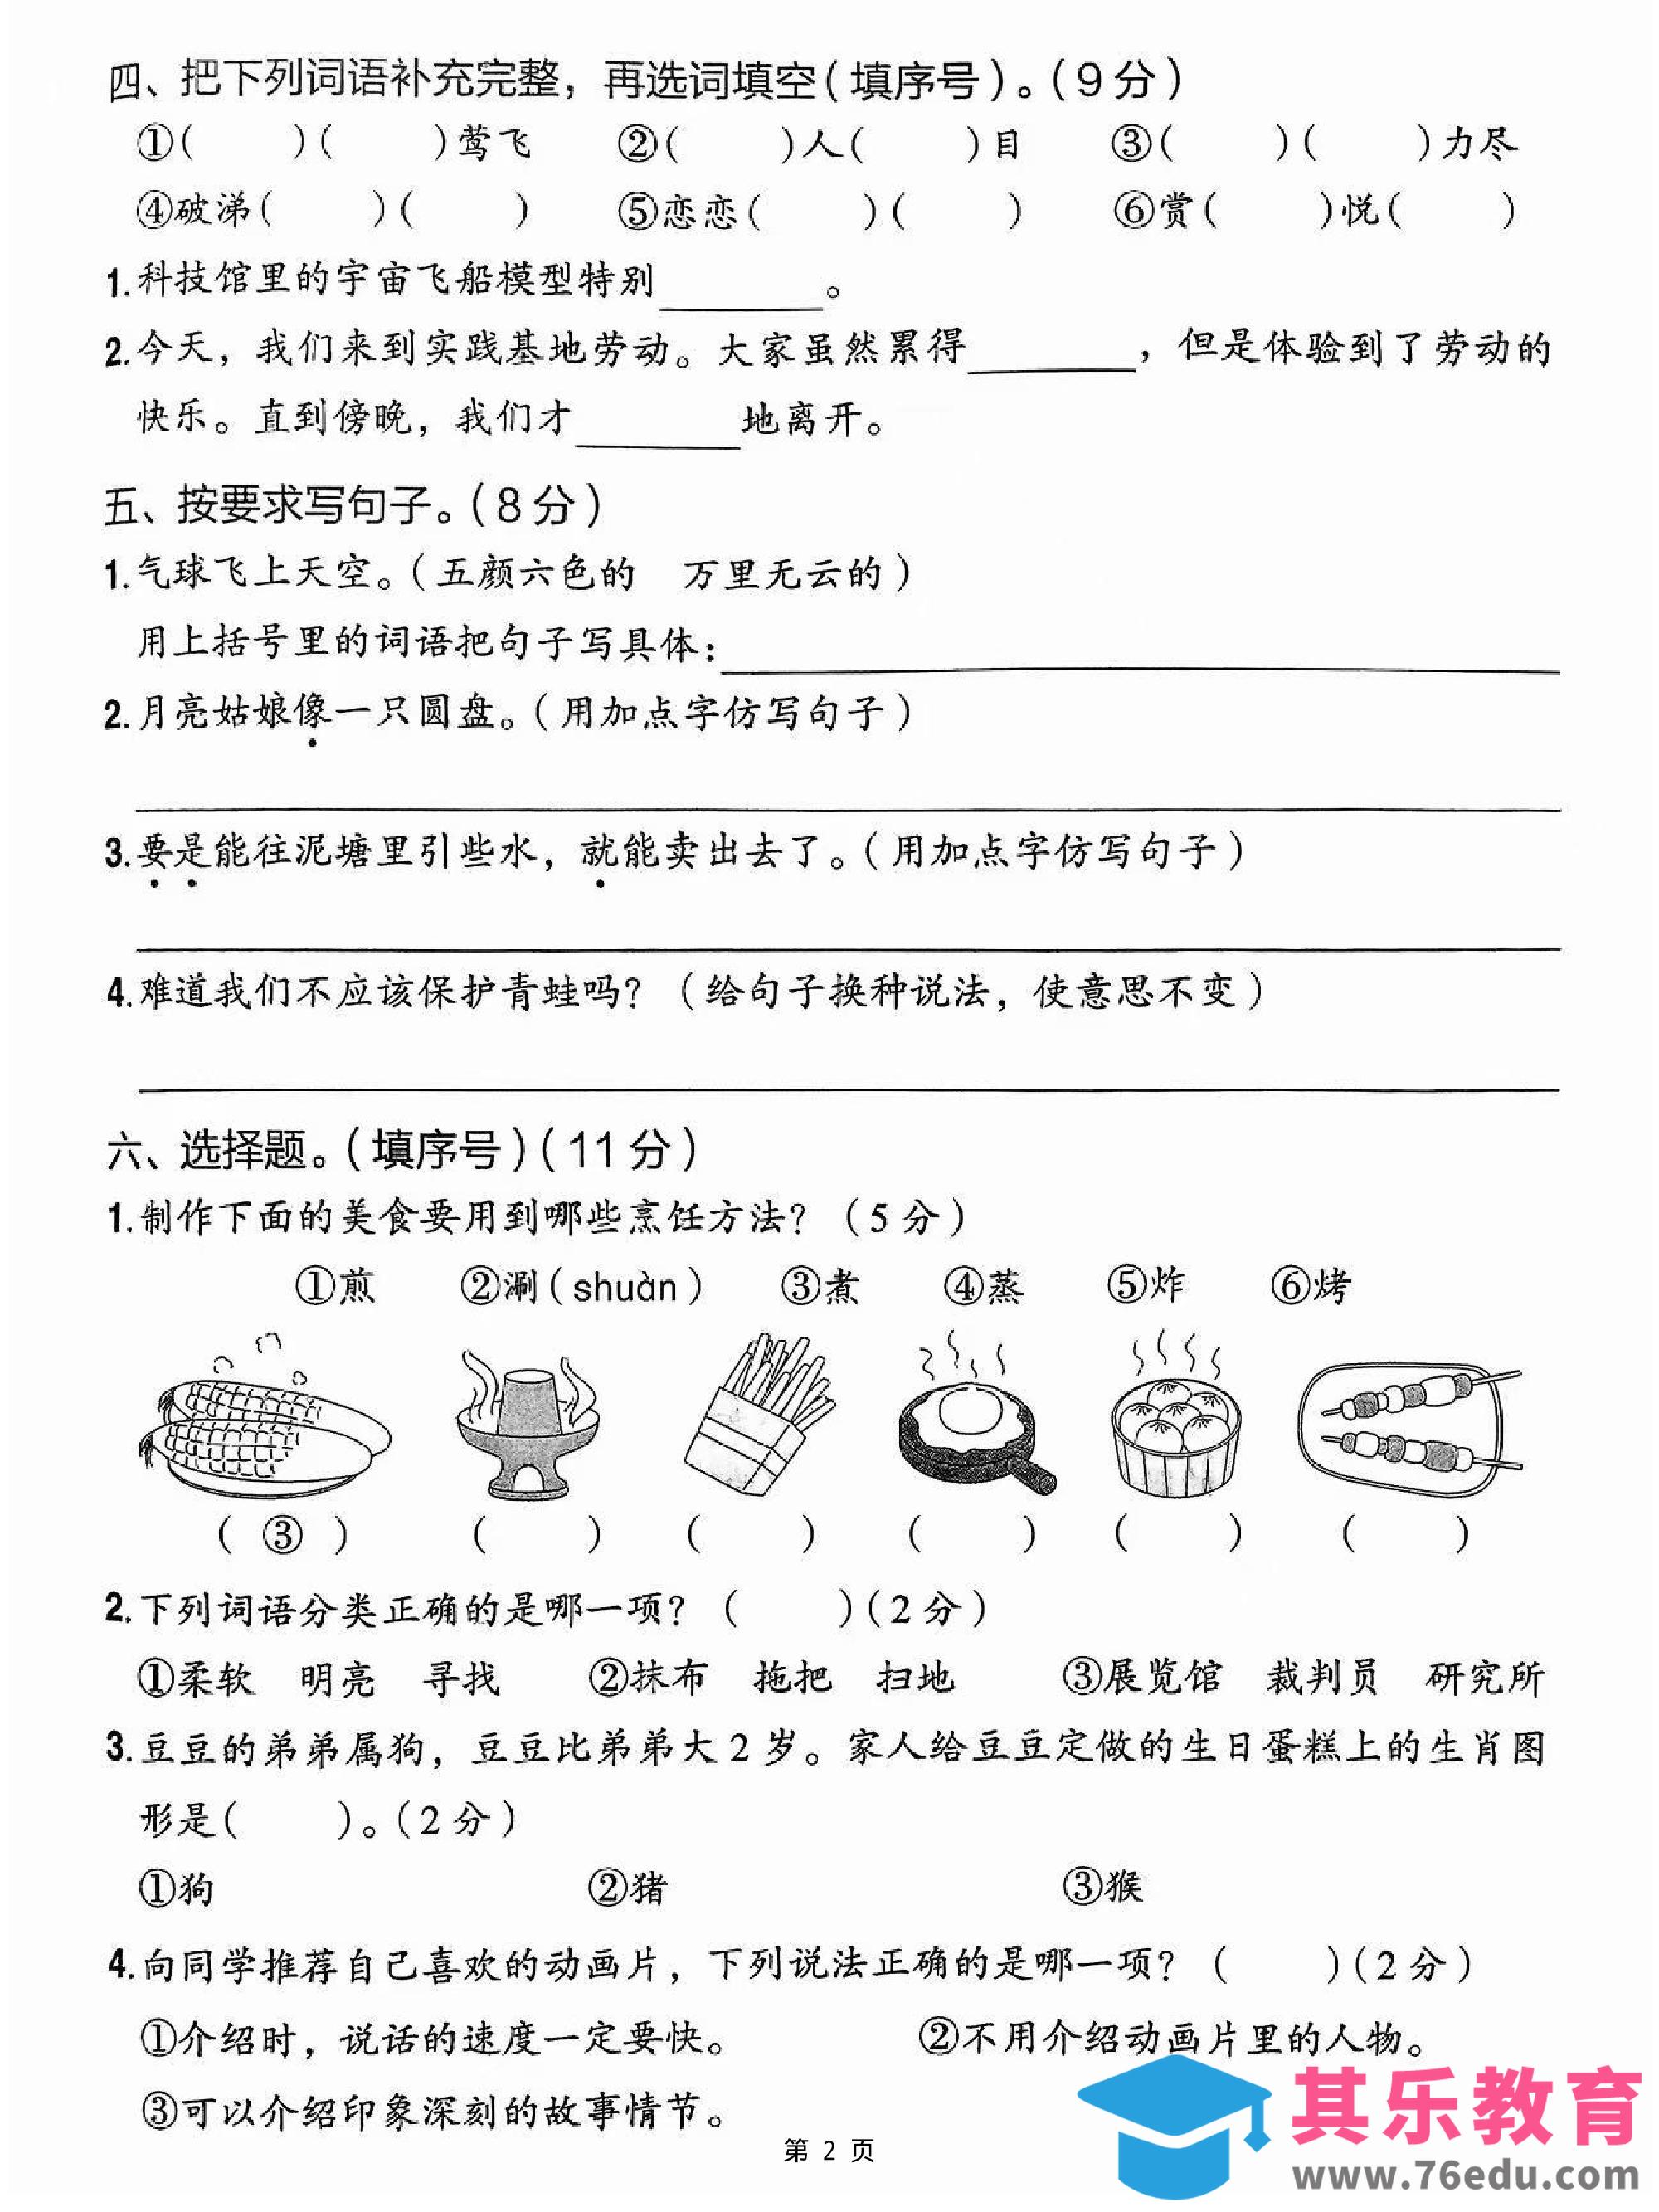 四、把下列词语补充完整，再选词填空(填序号)。(9分)
①(　　)(　　)莺飞　②(　　)人(　　)目　③(　　)(　　)力尽
④破涕(　　)(　　)　⑤恋恋(　　)(　　)　⑥赏(　　)悦(　　)
1.科技馆里的宇宙飞船模型特别________。
2.今天，我们来到实践基地劳动。大家虽然累得________，但是体验到了劳动的
快乐。直到傍晚，我们才________地离开。
五、按要求写句子。(8分)
1.气球飞上天空。(五颜六色的　万里无云的)
用上括号里的词语把句子写具体：________
2.月亮姑娘像一只圆盘。(用加点字仿写句子)
3.要是能往泥塘里引些水，就能卖出去了。(用加点字仿写句子)
4.难道我们不应该保护青蛙吗？(给句子换种说法，使意思不变)
六、选择题。(填序号)(11分)
1.制作下面的美食要用到哪些烹饪方法？(5分)
①煎　②涮(shuàn)　③煮　④蒸　⑤炸　⑥烤
(③)　(　　)　(　　)　(　　)　(　　)　(　　)
2.下列词语分类正确的是哪一项？(　　)(2分)
①柔软　明亮　寻找　②抹布　拖把　扫地　③展览馆　裁判员　研究所
3.豆豆的弟弟属狗，豆豆比弟弟大2岁。家人给豆豆定做的生日蛋糕上的生肖图
形是(　　)。(2分)
①狗　②猪　③猴
4.向同学推荐自己喜欢的动画片，下列说法正确的是哪一项？(　　)(2分)
①介绍时，说话的速度一定要快。　②不用介绍动画片里的人物。
③可以介绍印象深刻的故事情节。
第 2 页
其乐教育
www.76edu.com